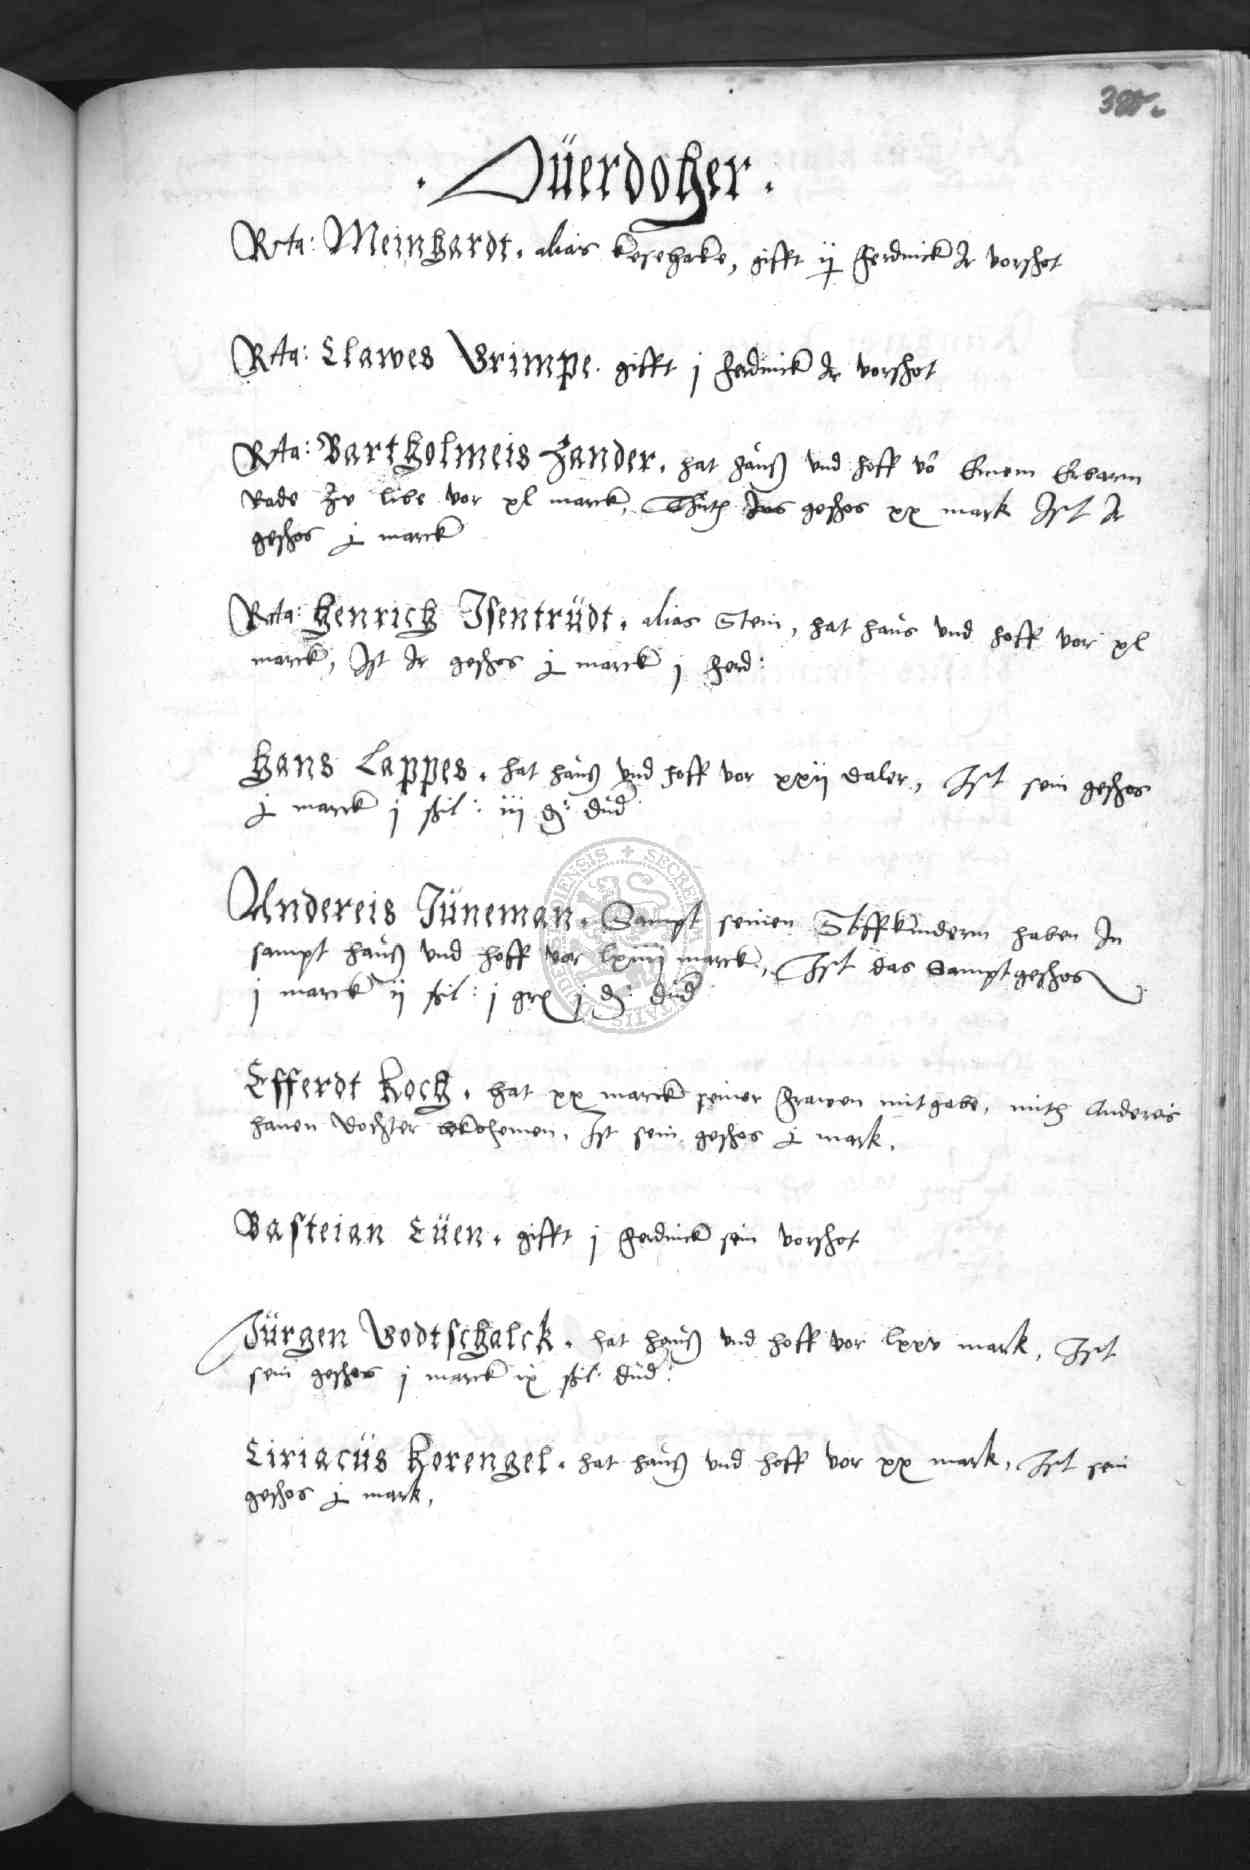 . Düerdoher .
Rcta: Meinhardt . alias kesehake, gifft ij ferdinck Ir vorschot
Rcta: Clawes Grimpe . gifft j ferdinck Ir vorschot
Rcta: Bartholmeis Zander . hat hauß vnd hoff vō Einem Erbarm
Rade Zu libe vor xl marck, Thuth Ins geschos xx mark Ist Ir
geschos j marck
Rcta: Henrich Isentrüdt . alias Stein, hat haus vnd hoff vor xl
marck, Ist Ir geschos j marck j ferd:
Hans Lappes . hat hauß vnd hoff vor xxij daler, Ist sein geschos
j marck j schil: iij d: Dud
Andereis Jüneman . Sampt seinen Stiffkindern haben In
sampt hauß vnd hoff vor lxiiij marck, Ist das Samptgeschos
j marck ij schil: j gr j d: Dud
Efferdt Koch . hat xx marck seiner frawen mitgabe, mith Andereis
hanen Dochter bekohemen, Ist sein geschos j mark.
Basteian Cüen . gifft j ferdinck sein vorschot
Jürgen Godtschalck . hat hauß vnd hoff vor lxxv mark, Ist
sein geschos j marck ix schil: Dud:
Ciriacüs Horengel . hat hauß vnd hoff vor xx mark, Ist sein
geschos j mark,